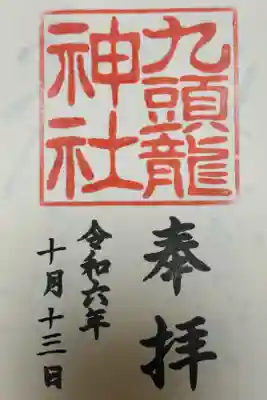 九頭龍
神社
奉拝
令和六年
十月十三日